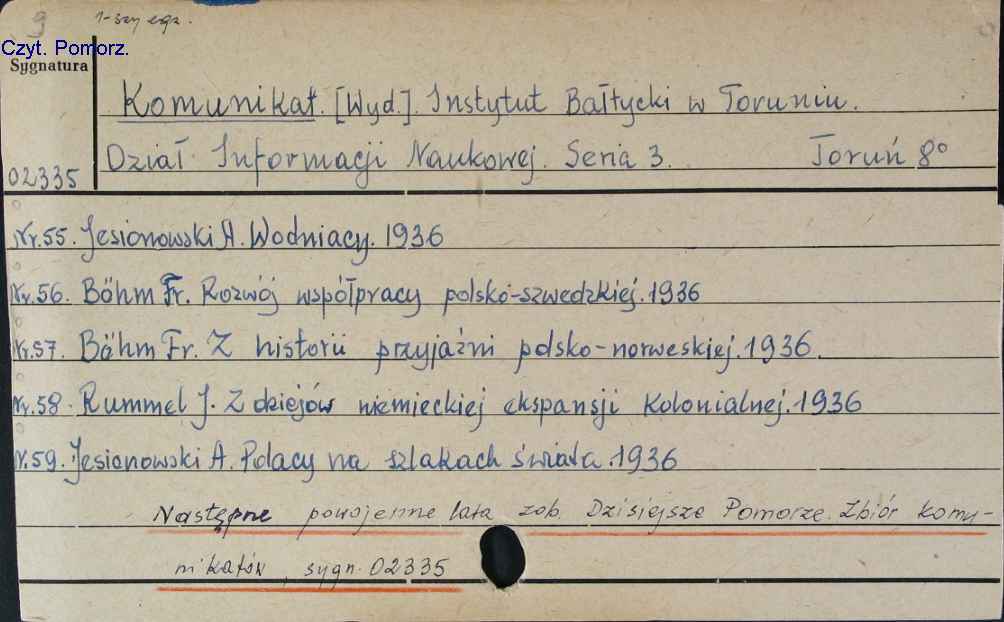 9
1-szy egz.
Czyt. Pomorz.
Sygnatura
Komunikat. [Wyd.]. Instytut Bałtycki w Toruniu.
Dział Informacji Naukowej. Seria 3. Toruń 8°
02335
Nr.55. Jesionowski A. Wodniacy. 1936
Nr.56. Böhm Fr. Rozwój współpracy polsko-szwedzkiej. 1936
Nr.57. Böhm Fr. Z historii przyjaźni polsko-norweskiej. 1936.
Nr.58. Rummel J. Z dziejów niemieckiej ekspansji kolonialnej. 1936
Nr.59. Jesionowski A. Polacy na szlakach świata. 1936
Następne powojenne lata zob. Dzisiejsze Pomorze. Zbiór komu-
nikatów, sygn. 02335